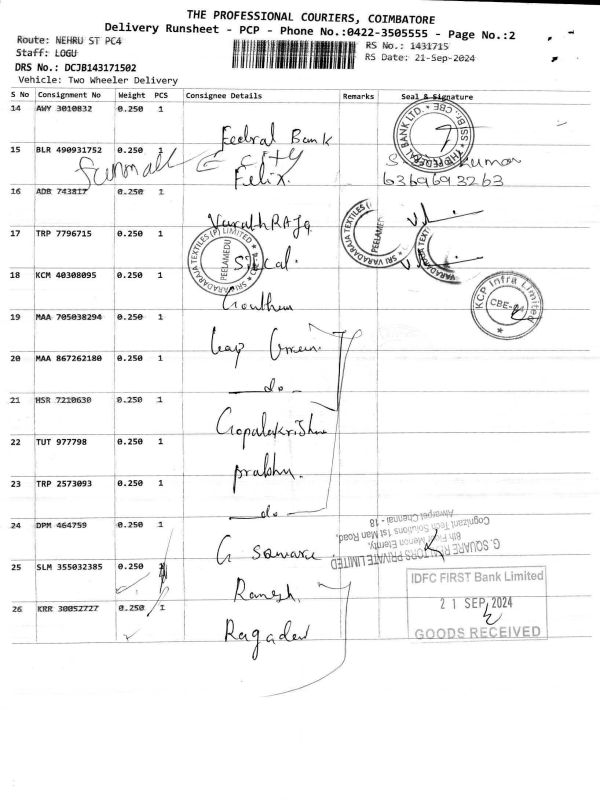 THE PROFESSIONAL COURIERS, COIMBATORE
Delivery Runsheet - PCP - Phone No.:0422-3505555 - Page No.:2
Route: NEHRU ST PC4
RS No.: 1431715
Staff: LOGU
RS Date: 21-Sep-2024
DRS No.: DCJB143171502
Vehicle: Two Wheeler Delivery
S No Consignment No Weight PCS Consignee Details Remarks Seal & Signature
14 AWY 3010832 0.250 1 Fedral Bank
THE FEDERAL BANK LTD. * CBE
15 BLR 490931752 0.250 1 Felix.
E CITY
6369693263
16 ADB 743817 0.250 1
17 TRP 7796715 0.250 1
SRI VARADARAJA TEXTILES (P) LIMITED
PEELAMEDU
SRI VARADARAJA TEXTILES
PEELAMEDU
18 KCM 40308095 0.250 1 Gouthem
KCP Infra Limited
19 MAA 705038294 0.250 1 Green.
20 MAA 867262180 0.250 1 do
21 HSR 7210630 0.250 1 Gopalakrishna
22 TUT 977798 0.250 1 prabhu.
23 TRP 2573093 0.250 1 do
24 DPM 464759 0.250 1 G square
G. SQUARE REALTORS PRIVATE LIMITED
8th Floor Menon Eternty,
Cognizant Tech Solutions 1st Man Road,
Alwarpet Chennai - 18
25 SLM 355032385 0.250 1 Ramesh.
26 KRR 30052727 0.250 1 Ragadev
IDFC FIRST Bank Limited
21 SEP 2024
GOODS RECEIVED